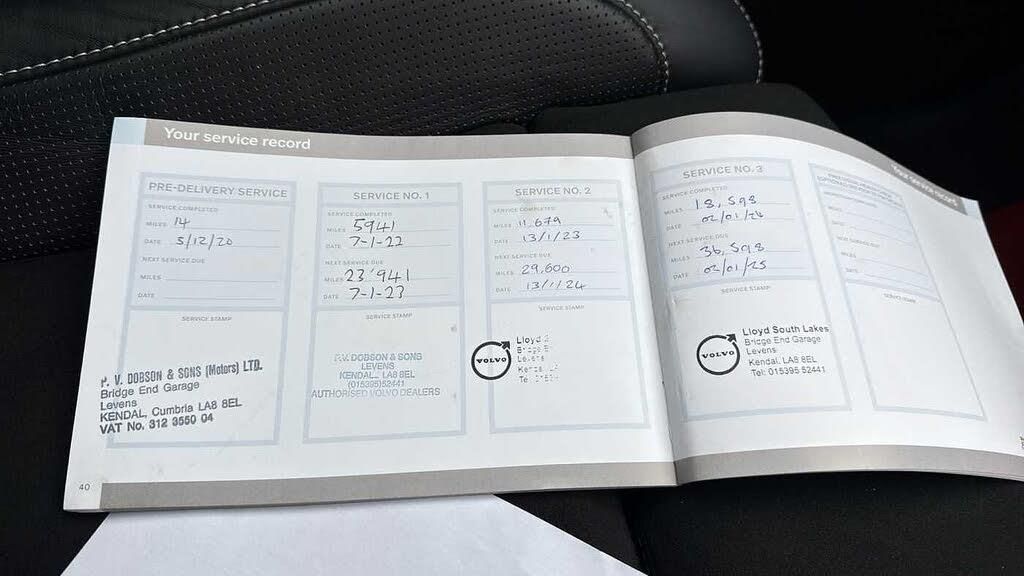 Your service record
PRE-DELIVERY SERVICE
SERVICE COMPLETED
MILES 14
DATE 5/12/20
NEXT SERVICE DUE
MILES
DATE
SERVICE STAMP
P. V. DOBSON & SONS (Motors) LTD.
Bridge End Garage
Levens
KENDAL, Cumbria LA8 8EL
VAT No. 312 3550 04
40
SERVICE NO. 1
SERVICE COMPLETED
MILES 5941
DATE 7-1-22
NEXT SERVICE DUE
MILES 23'941
DATE 7-1-23
SERVICE STAMP
P.V. DOBSON & SONS
LEVENS
KENDAL. LA8 8EL
(015395) 52441
AUTHORISED VOLVO DEALERS
SERVICE NO. 2
SERVICE COMPLETED
MILES 11,679
DATE 13/1/23
NEXT SERVICE DUE
MILES 29,600
DATE 13/1/24
SERVICE STAMP
VOLVO
Lloyd
Levens
SERVICE NO. 3
SERVICE COMPLETED
MILES 18,598
DATE 02/01/24
NEXT SERVICE DUE
MILES 36,598
DATE 02/01/25
SERVICE STAMP
VOLVO
Lloyd South Lakes
Bridge End Garage
Levens
Kendal. LA8 8EL
Tel: 015395 52441
Your service record
NEXT SERVICE DUE
MILES
DATE
SERVICE STAMP